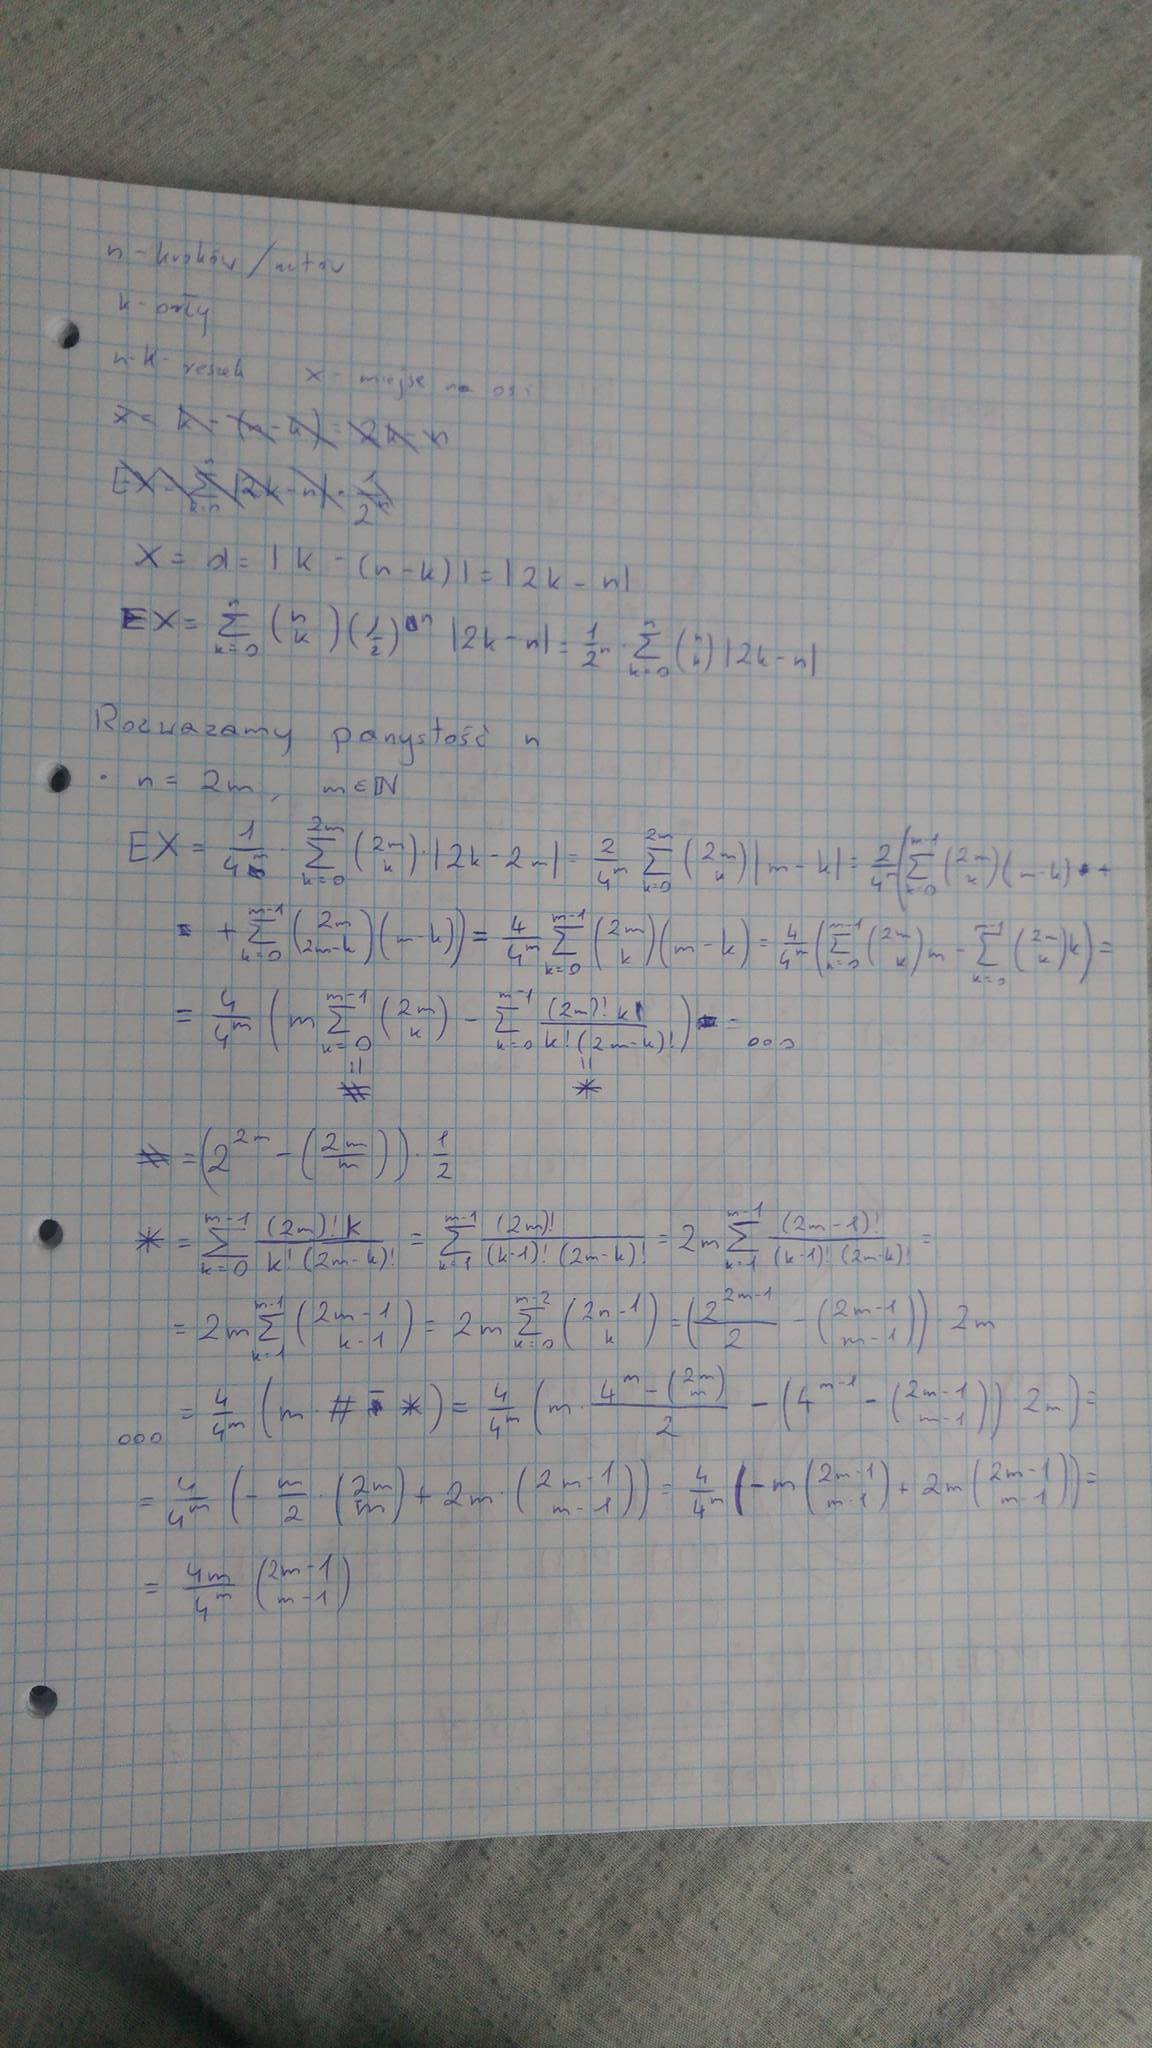 n - kroków / rzutów
k - orły
n-k - reszek    x - miejsce na osi
x = k - (n - k) = 2k - n
EX = ∑_{k=n}^{n} |2k - n| · 1/2^n
X = d = |k - (n - k)| = |2k - n|
EX = ∑_{k=0}^{n} (n k) (1/2)^n |2k - n| = 1/2^n · ∑_{k=0}^{n} (n k) |2k - n|
Rozważamy parzystość n
· n = 2m, m ∈ ℕ
EX = 1/4^m · ∑_{k=0}^{2m} (2m k) · |2k - 2m| = 2/4^m ∑_{k=0}^{2m} (2m k) |m - k| = 2/4^m (∑_{k=0}^{m-1} (2m k) (m - k) +
+ ∑_{k=0}^{m-1} (2m 2m-k) (m - k)) = 4/4^m ∑_{k=0}^{m-1} (2m k) (m - k) = 4/4^m (∑_{k=0}^{m-1} (2m k) m - ∑_{k=0}^{m-1} (2m k) k) =
= 4/4^m (m ∑_{k=0}^{m-1} (2m k) - ∑_{k=0}^{m-1} (2m)! k / k! (2m-k)!) = ...
= #    = *
# = (2^{2m} - (2m/m)) · 1/2
* = ∑_{k=0}^{m-1} (2m)! k / k! (2m-k)! = ∑_{k=1}^{m-1} (2m)! / (k-1)! (2m-k)! = 2m ∑_{k=1}^{m-1} (2m-1)! / (k-1)! (2m-k)! =
= 2m ∑_{k=1}^{m-1} (2m-1 k-1) = 2m ∑_{k=0}^{m-2} (2m-1 k) = (2^{2m-1}/2 - (2m-1 m-1)) 2m
... = 4/4^m (m · # - *) = 4/4^m (m · (4^m - (2m m))/2 - (4^{m-1} - (2m-1 m-1)) 2m) =
= 4/4^m (- m/2 · (2m m) + 2m · (2m-1 m-1)) = 4/4^m (-m (2m-1 m-1) + 2m (2m-1 m-1)) =
= 4m/4^m (2m-1 m-1)